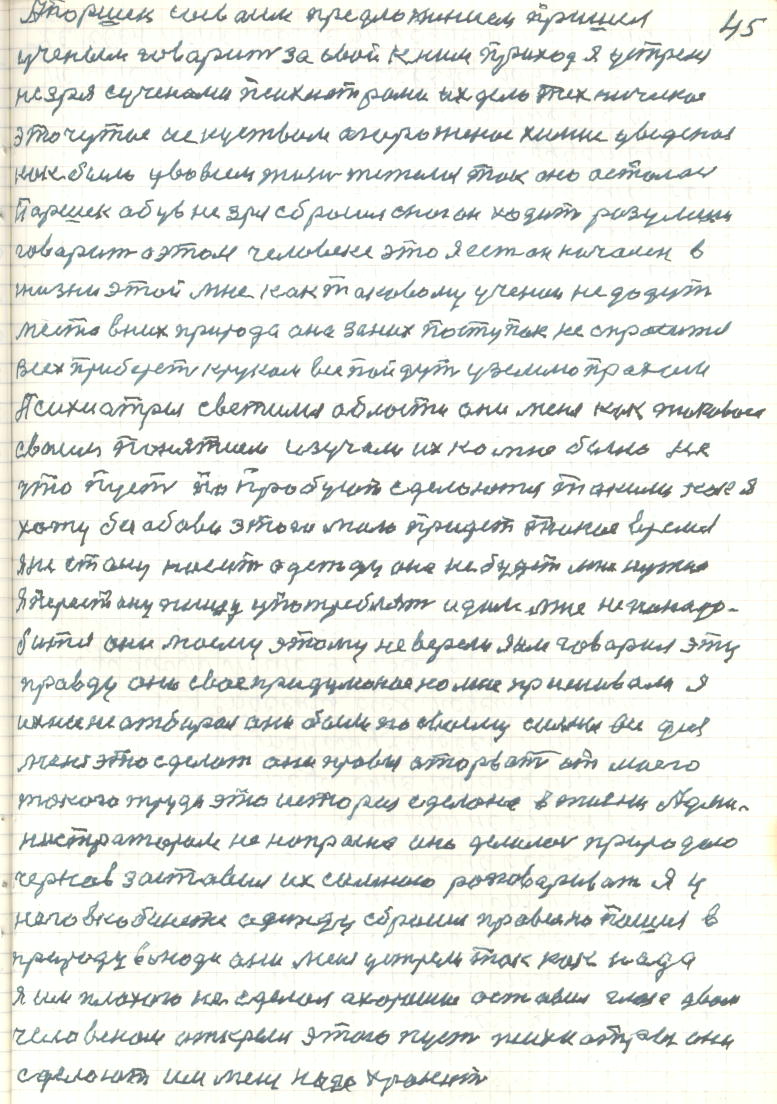 45
Аторшек сиваим предложнием пришел
ученым говарит за свой к ним приход я устрем
незря сученами психиатрами их дело техническое
эточутое искуством огороженое химие уведенае
как была увовсем тяжела так оно осталас
Паршек обув не зря сбросил он ходит разумеш
говарит о этом человеке это я ест он начален в
жизни этой мне как таковому ученаи не дадут
места вних природа она заних поступак не спросит
всех приберет крукам все пойдут узелмо прахом
Психиатры светила области они меня как таковога
своим понятием изучали их ко мне была не
что пуст по пробуют сделаются такими как я
хожу без обови этого мало придет такое время
я не стану насит одежду она не будет мне нужна
я перестану пищу употреблят идом мне не понадо-
битя они моему этому неверели я им говарил эту
правду они свае придуманае комне пришивали я
ихнее не отбирал они были по своему силны все для
меня это сделат они правы аторват от моего
такого труда это история сделане в жизни Адми-
нистраторам не напрасна оно делалос природаю
чернов заставил их самною разговариват я у
наго вкобинете одежду сбросил правелно пошел в
природу вынади они меня устрем так как нада
я им плохого не сделал ахорошие оставил глаза двам
человекам открыл этого пуст психиатры они
сделают им меня нада хранит